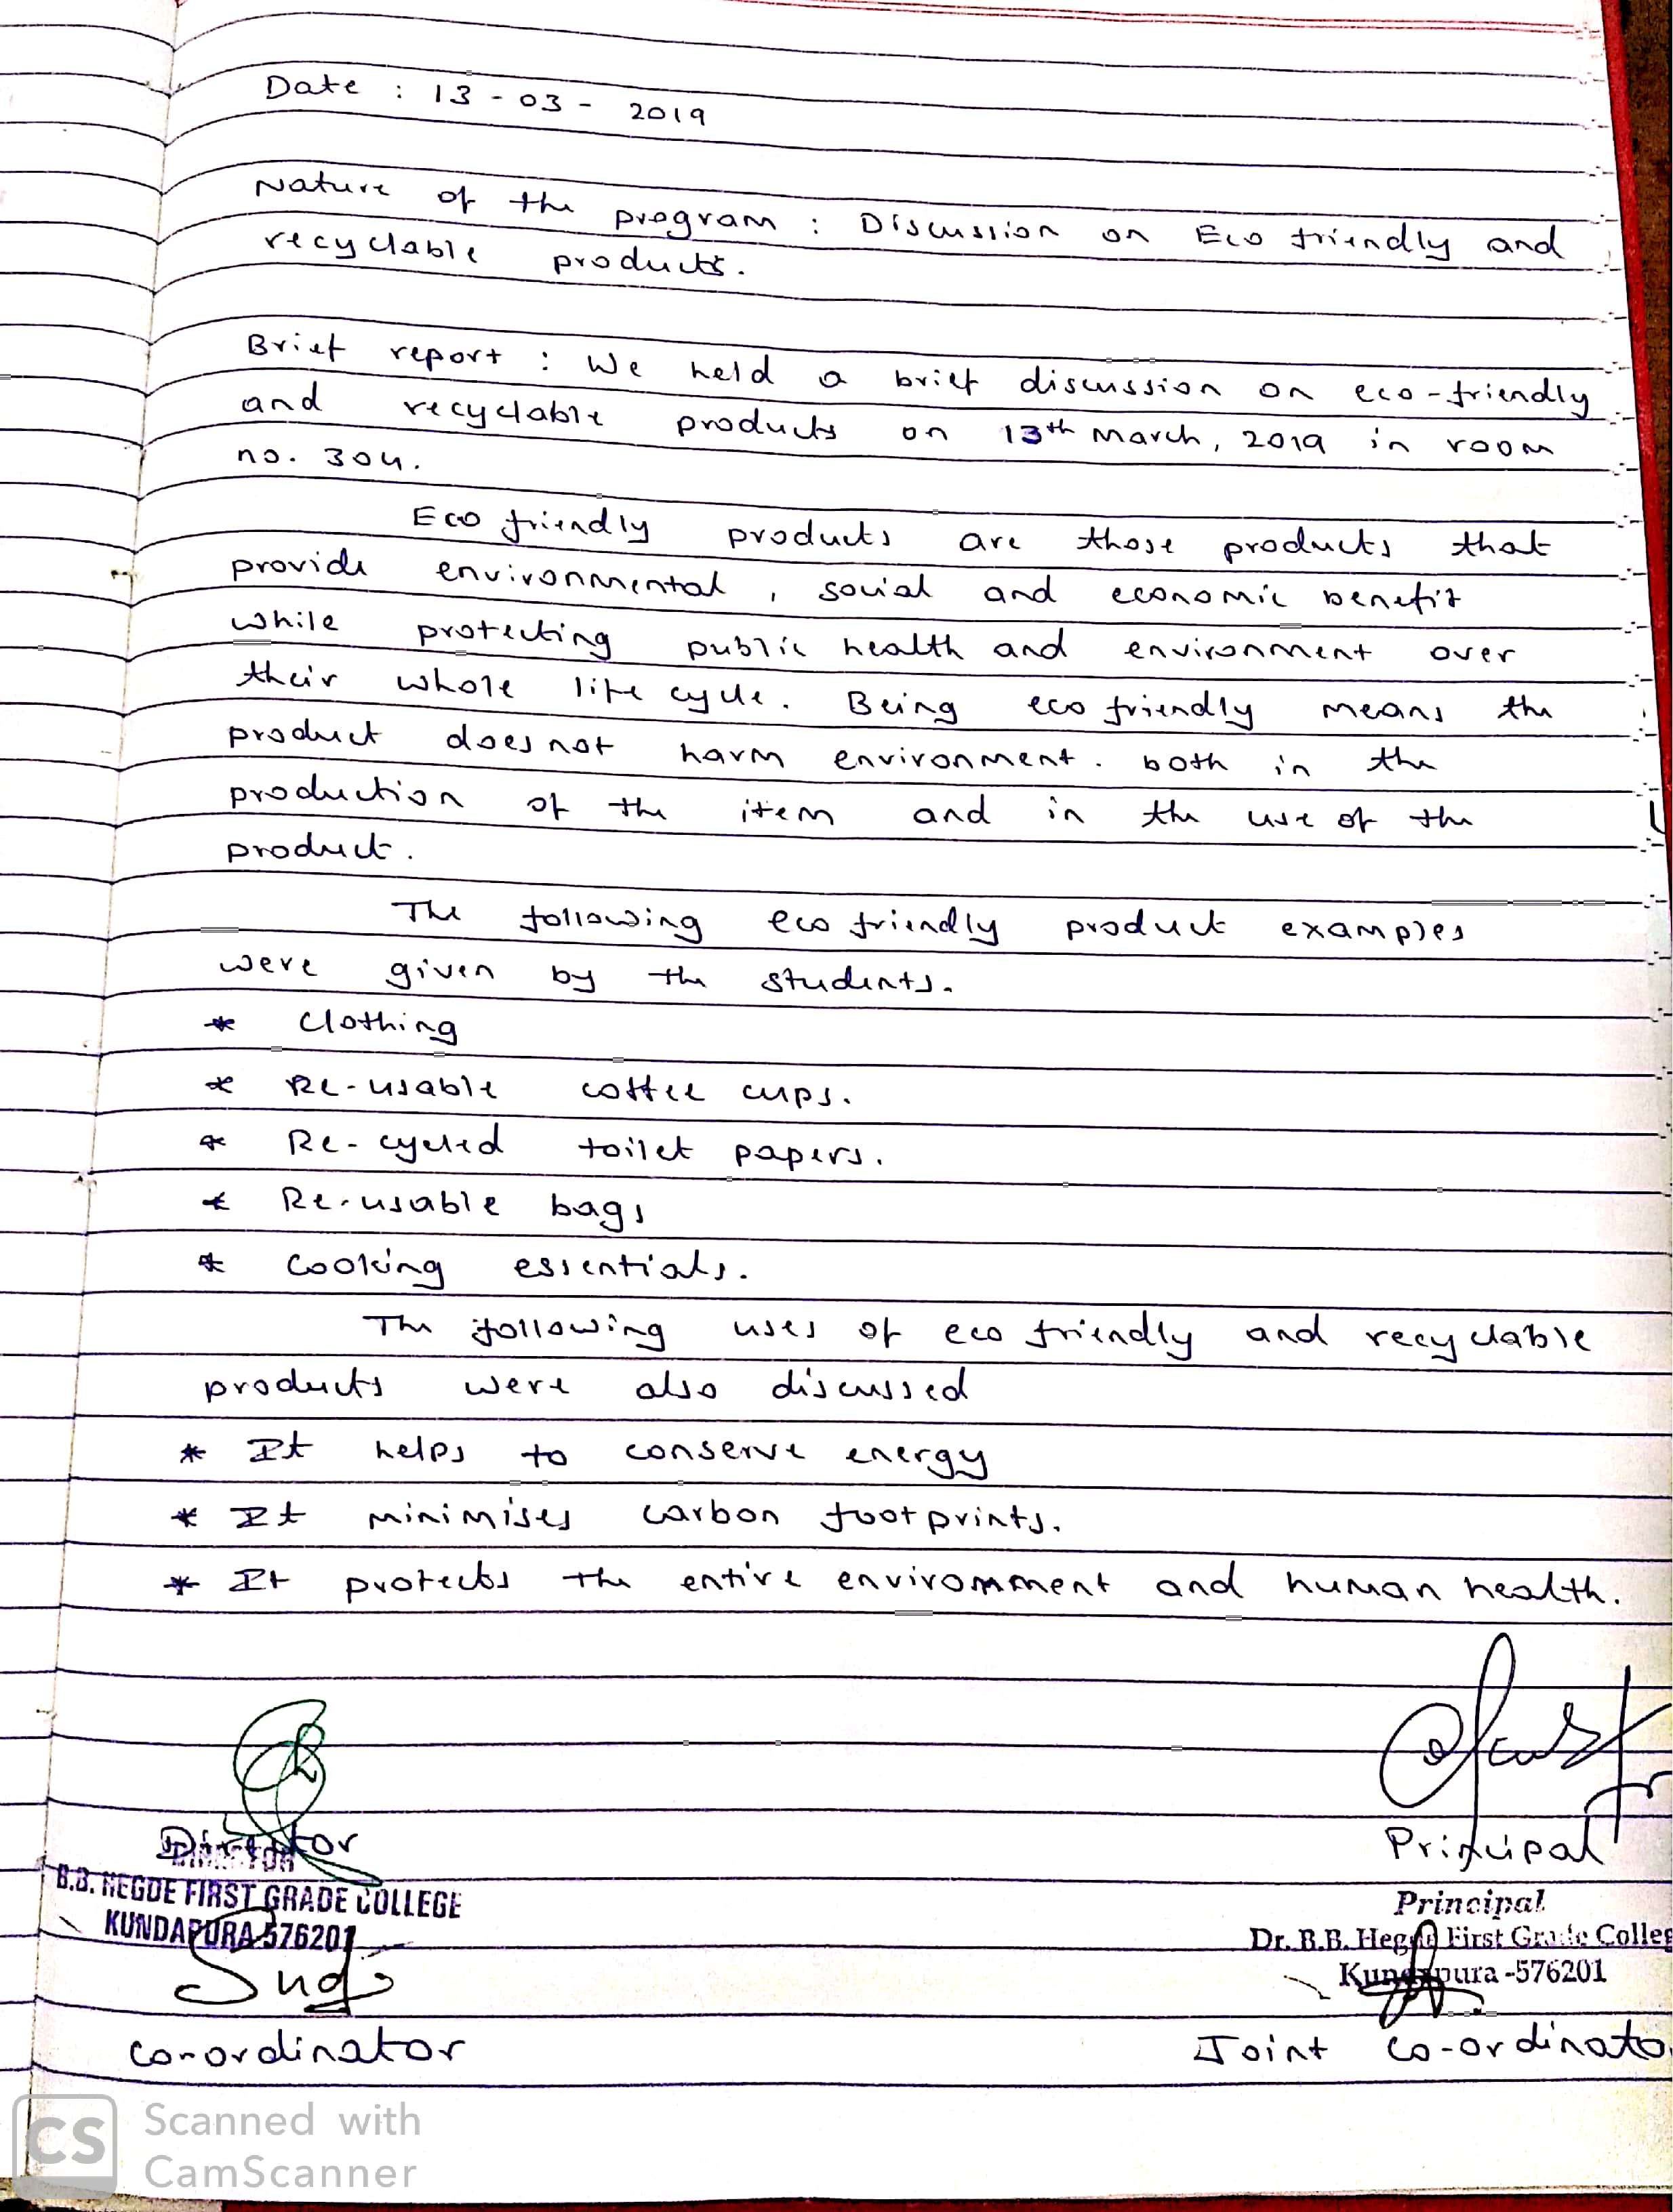 Date : 13 - 03 - 2019
Nature of the program : Discussion on Eco friendly and
recyclable products.
Brief report : We held a brief discussion on eco-friendly
and recyclable products on 13th March, 2019 in room
no. 304.
Eco friendly products are those products that
provide environmental, social and economic benefit
while protecting public health and environment over
their whole life cycle. Being eco friendly means the
product does not harm environment. both in the
production of the item and in the use of the
product.
The following eco friendly product examples
were given by the students.
* Clothing
* Re-usable coffee cups.
* Re-cycled toilet papers.
* Re-usable bags
* Cooking essentials.
The following uses of eco friendly and recyclable
products were also discussed
* It helps to conserve energy
* It minimises carbon footprints.
* It protects the entire enviromment and human health.
Director
Principal
DIRECTOR
B.B. HEGDE FIRST GRADE COLLEGE
KUNDAPURA-576201
Principal
Dr. B.B. Hegde First Grade Colleg
Kundapura -576201
Co-ordinator
Joint Co-ordinato
CS
Scanned with
CamScanner